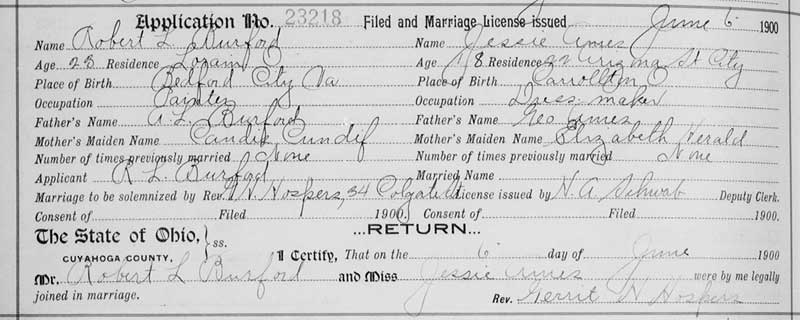 Application No. 23218 Filed and Marriage License issued June 6 1900
Name Robert L. Burford Name Jessie Ames
Age 23 Residence Lorain O Age 18 Residence 22 Arizona St City
Place of Birth Bedford City Va Place of Birth Carrollton O
Occupation Painter Occupation Dress maker
Father's Name A. L. Burford Father's Name Geo Ames
Mother's Maiden Name Candis Cundif Mother's Maiden Name Elizabeth Herald
Number of times previously married None Number of times previously married None
Applicant R L. Burford Married Name
Marriage to be solemnized by Rev. G H. Hospers, 34 Colgate St License issued by H. A. Schwab Deputy Clerk.
Consent of Filed 1900. Consent of Filed 1900.
The State of Ohio, ss. ...RETURN...
CUYAHOGA COUNTY, I Certify, That on the 6 day of June 1900
Mr. Robert L Burford and Miss Jessie Ames were by me legally
joined in marriage. Rev. Gerrit H Hospers